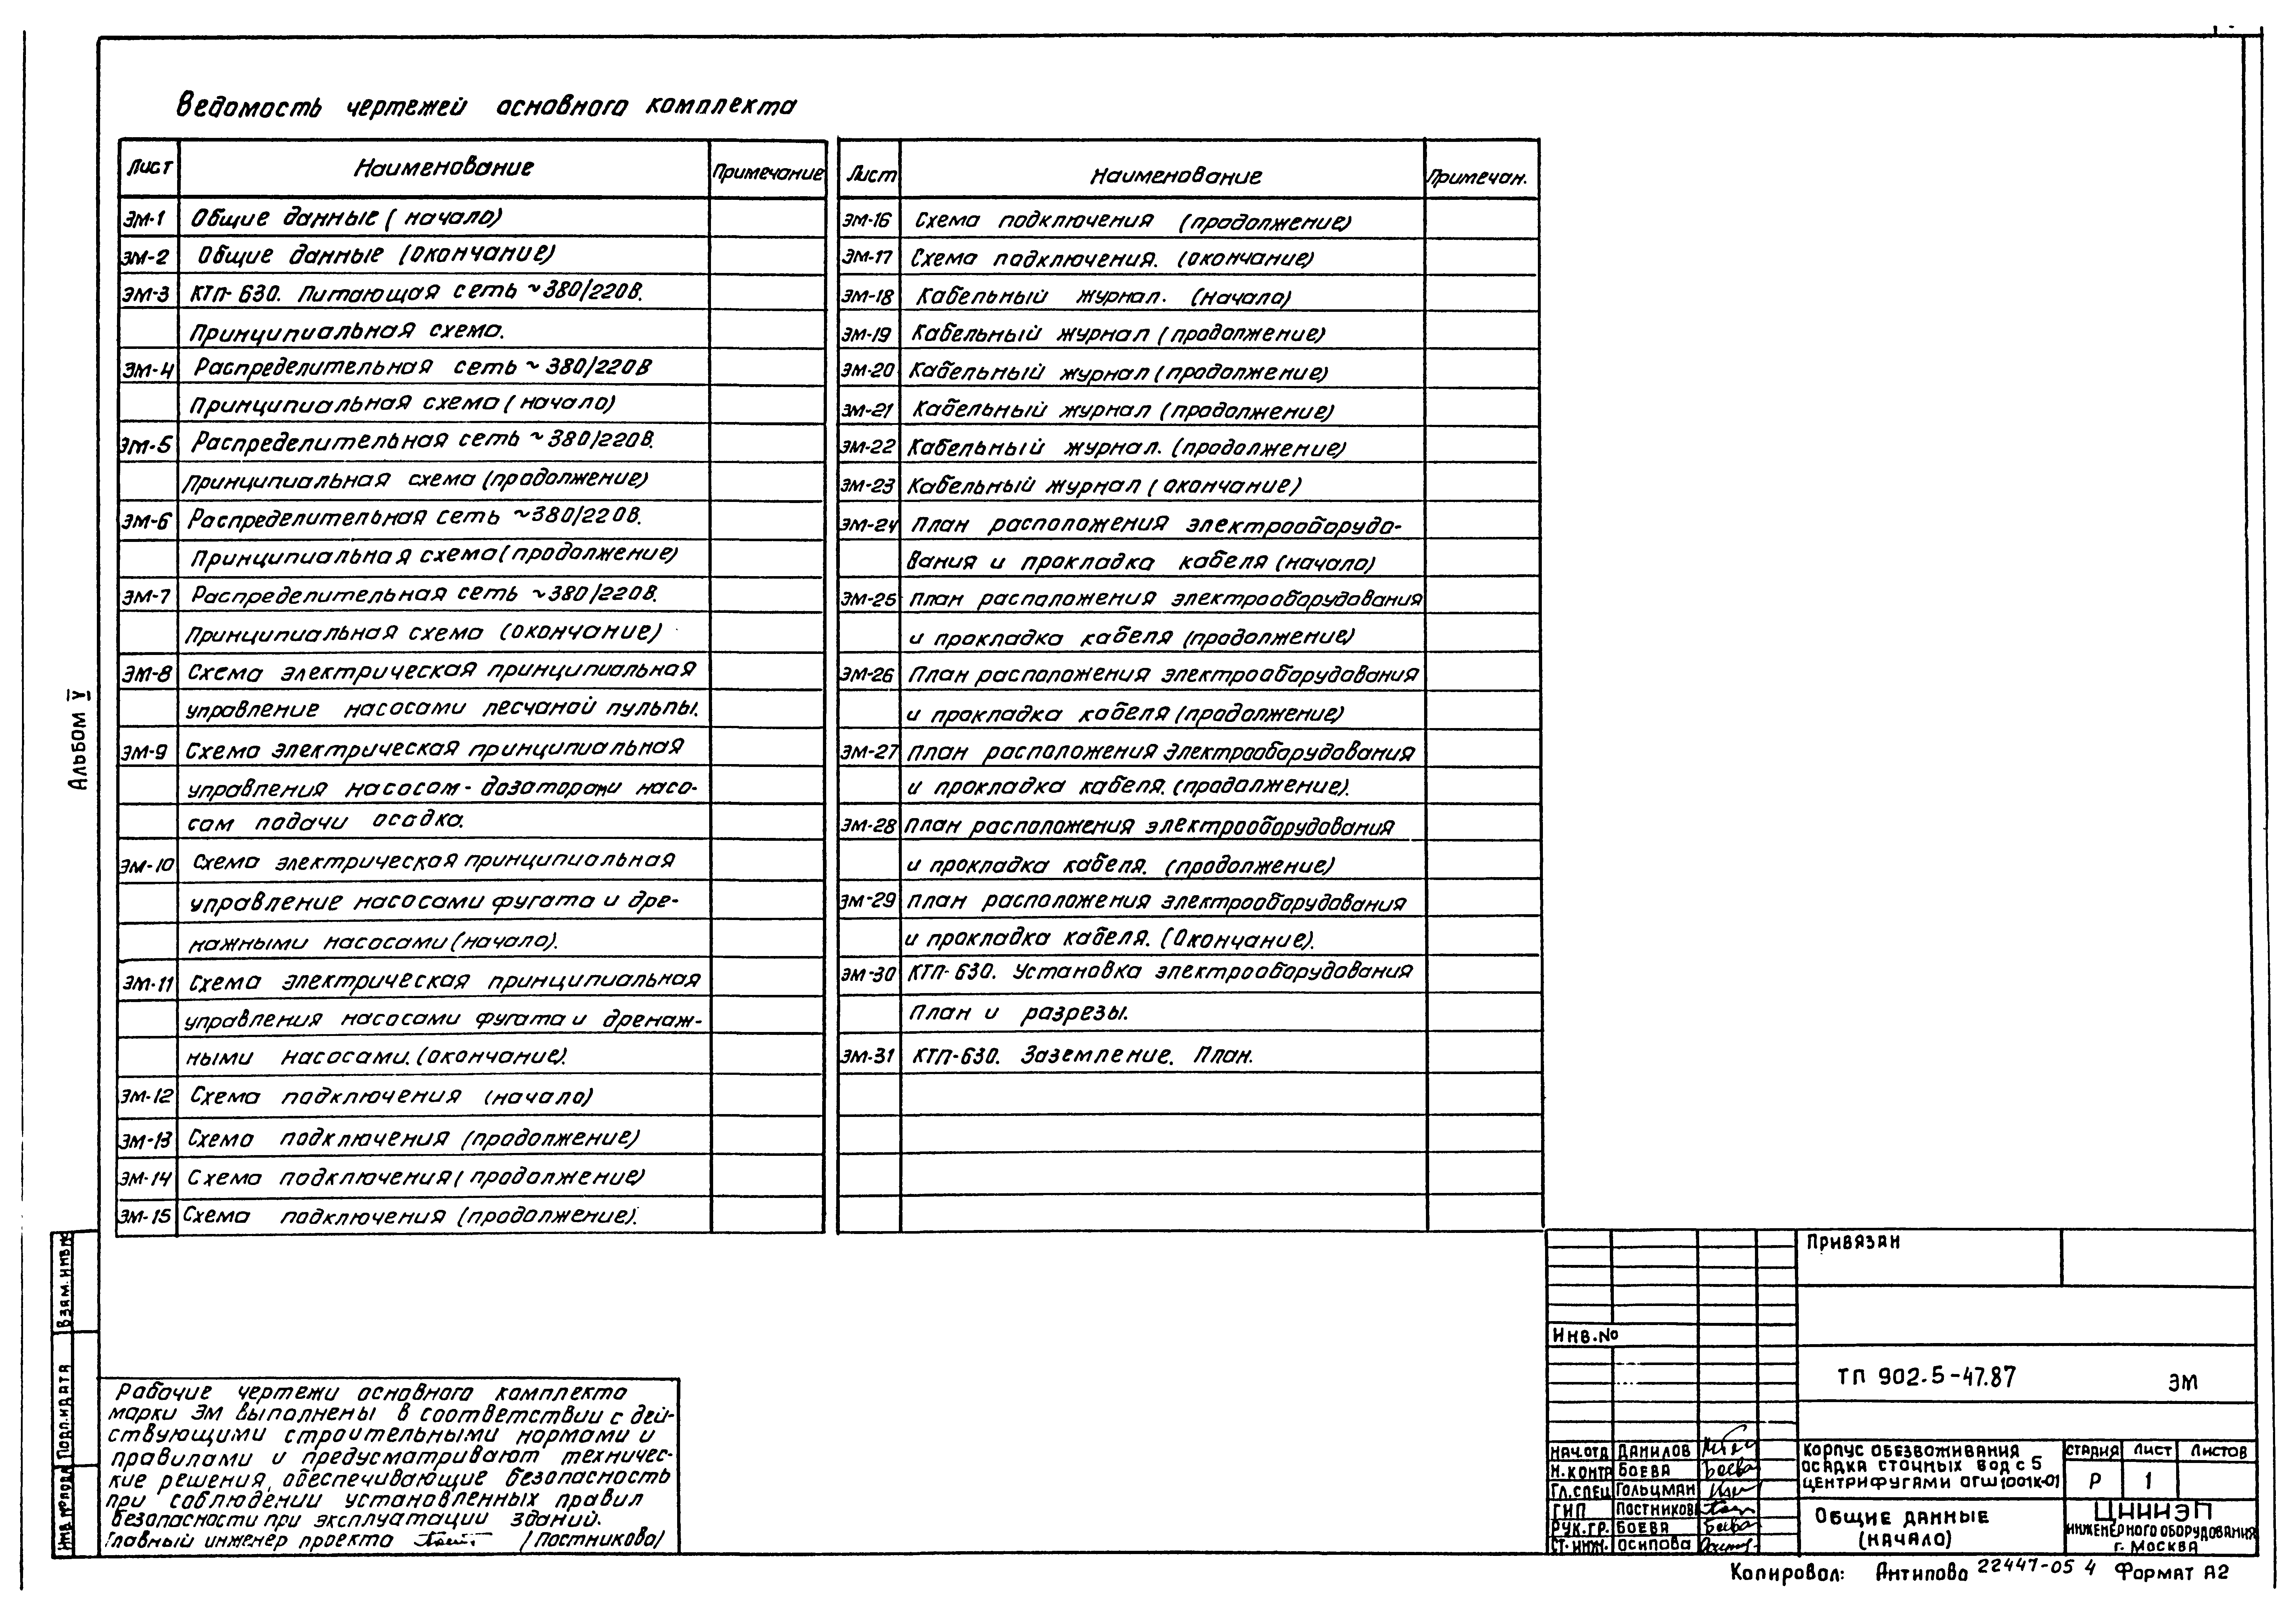 Ведомость чертежей основного комплекта
Лист Наименование Примечание
ЭМ-1 Общие данные (начало)
ЭМ-2 Общие данные (окончание)
ЭМ-3 КТП-630. Питающая сеть ~380/220В.
Принципиальная схема.
ЭМ-4 Распределительная сеть ~380/220В
Принципиальная схема (начало)
ЭМ-5 Распределительная сеть ~380/220В.
Принципиальная схема (продолжение)
ЭМ-6 Распределительная сеть ~380/220В.
Принципиальная схема (продолжение)
ЭМ-7 Распределительная сеть ~380/220В.
Принципиальная схема (окончание)
ЭМ-8 Схема электрическая принципиальная
управление насосами песчаной пульпы.
ЭМ-9 Схема электрическая принципиальная
управления насосом-дозатороми насо-
сам подачи осадка.
ЭМ-10 Схема электрическая принципиальная
управление насосами фугата и дре-
нажными насосами (начало).
ЭМ-11 Схема электрическая принципиальная
управления насосами фугата и дренаж-
ными насосами. (окончание).
ЭМ-12 Схема подключения (начало)
ЭМ-13 Схема подключения (продолжение)
ЭМ-14 Схема подключения (продолжение)
ЭМ-15 Схема подключения (продолжение).
Лист Наименование Примечан.
ЭМ-16 Схема подключения (продолжение)
ЭМ-17 Схема подключения. (окончание)
ЭМ-18 Кабельный журнал. (начало)
ЭМ-19 Кабельный журнал (продолжение)
ЭМ-20 Кабельный журнал (продолжение)
ЭМ-21 Кабельный журнал (продолжение)
ЭМ-22 Кабельный журнал. (продолжение)
ЭМ-23 Кабельный журнал (окончание)
ЭМ-24 План расположения электрооборудо-
вания и прокладка кабеля (начало)
ЭМ-25 План расположения электрооборудования
и прокладка кабеля (продолжение)
ЭМ-26 План расположения электрооборудования
и прокладка кабеля (продолжение)
ЭМ-27 План расположения электрооборудования
и прокладка кабеля. (продолжение).
ЭМ-28 План расположения электрооборудования
и прокладка кабеля. (продолжение)
ЭМ-29 План расположения электрооборудования
и прокладка кабеля. (Окончание).
ЭМ-30 КТП-630. Установка электрооборудования
План и разрезы.
ЭМ-31 КТП-630. Заземление. План.
Альбом V
Взам. инв. №
Подп. и дата
Инв. № подл.
Рабочие чертежи основного комплекта
марки ЭМ выполнены в соответствии с дей-
ствующими строительными нормами и
правилами и предусматривают техничес-
кие решения, обеспечивающие безопасность
при соблюдении установленных правил
безопасности при эксплуатации зданий.
Главный инженер проекта (Постникова)
Привязан
Инв. №
ТП 902-5-47.87 ЭМ
Нач.отд Данилов
Н.контр Боева
Гл.спец Гольцман
ГИП Постникова
Рук.гр. Боева
Ст.инж. Осипова
Корпус обезвоживания
осадка сточных вод с 5
центрифугами ОГШ1001К-01
Стадия Лист Листов
Р 1
Общие данные
(начало)
ЦНИИЭП
инженерного оборудования
г. Москва
Копировал: Антипова 22447-05 4 Формат А2